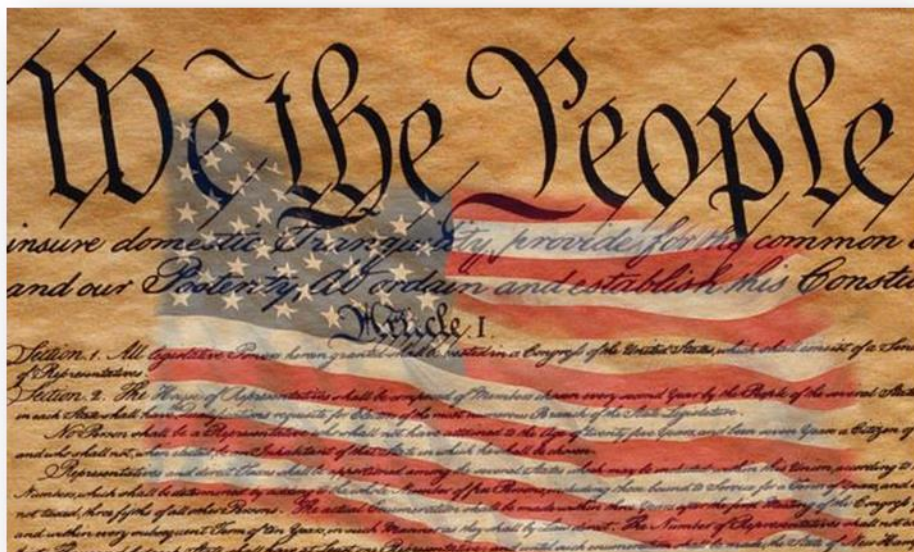 We the People
insure domestic Tranquility, provide for the common
and our Posterity, do ordain and establish this Constu
Article. I.
Section. 1. All legislative Powers herein granted shall be vested in a Congress of the United States, which shall consist of a Sena
of Representatives.
Section. 2. The House of Representatives shall be composed of Members chosen every second Year by the People of the several States
in each State shall have the Qualifications requisite for Electors of the most numerous Branch of the State Legislature.
No Person shall be a Representative who shall not have attained to the Age of twenty five Years, and been seven Years a Citizen of
and who shall not, when elected, be an Inhabitant of that State in which he shall be chosen.
Representatives and direct Taxes shall be apportioned among the several States which may be included within this Union, according to
Numbers, which shall be determined by adding to the whole Number of free Persons, including those bound to Service for a Term of Years, and
not taxed, three fifths of all other Persons. The actual Enumeration shall be made within three Years after the first Meeting of the Congress
and within every subsequent Term of ten Years, in such Manner as they shall by Law direct. The Number of Representatives shall not
until such enumeration shall be made, the State of New Hamp